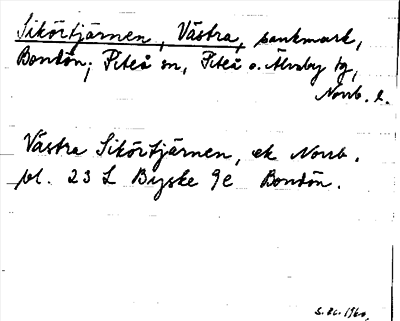 Sikörtjärnen, Västra, sankmark,
Bondön; Piteå sn, Piteå o. Älvsby tg,
Norrb. l.
Västra Sikörtjärnen, ek Norrb.
bl. 23 L Byske 9e Bondön.
1960.